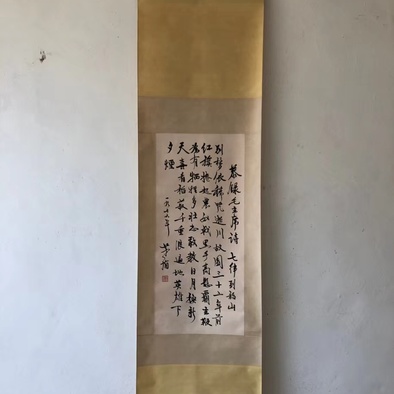 恭錄毛主席詩 七律到韶山
别夢依稀咒逝川故園三十二年前
紅旗捲起農奴戟黑手高懸霸主鞭
為有犧牲多壯志敢教日月換新
天喜看稻菽千重浪遍地英雄下
夕煙